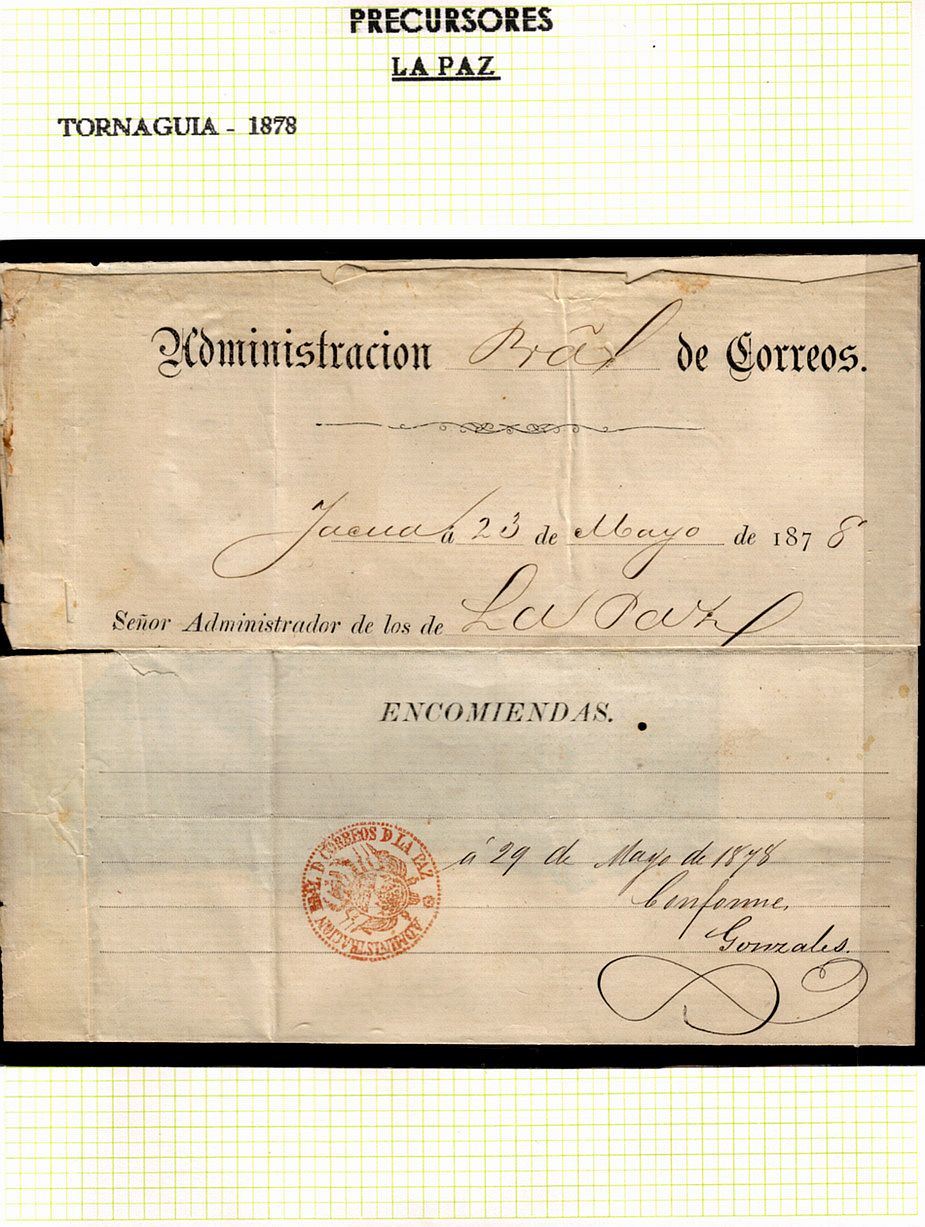 PRECURSORES
LA PAZ
TORNAGUIA - 1878
Administracion Prãl de Correos.
Tacna á 23 de Mayo de 1878
Señor Administrador de los de La Paz
ENCOMIENDAS.
ADMINISTRACION PRAL. D CORREOS D LA PAZ
á 29 de Mayo de 1878
Conforme,
Gonzales.